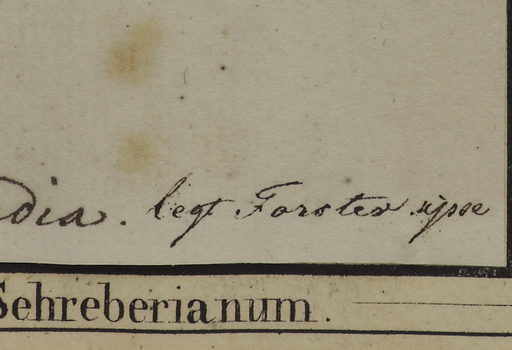 dia. legt Forster ipse
Schreberianum.